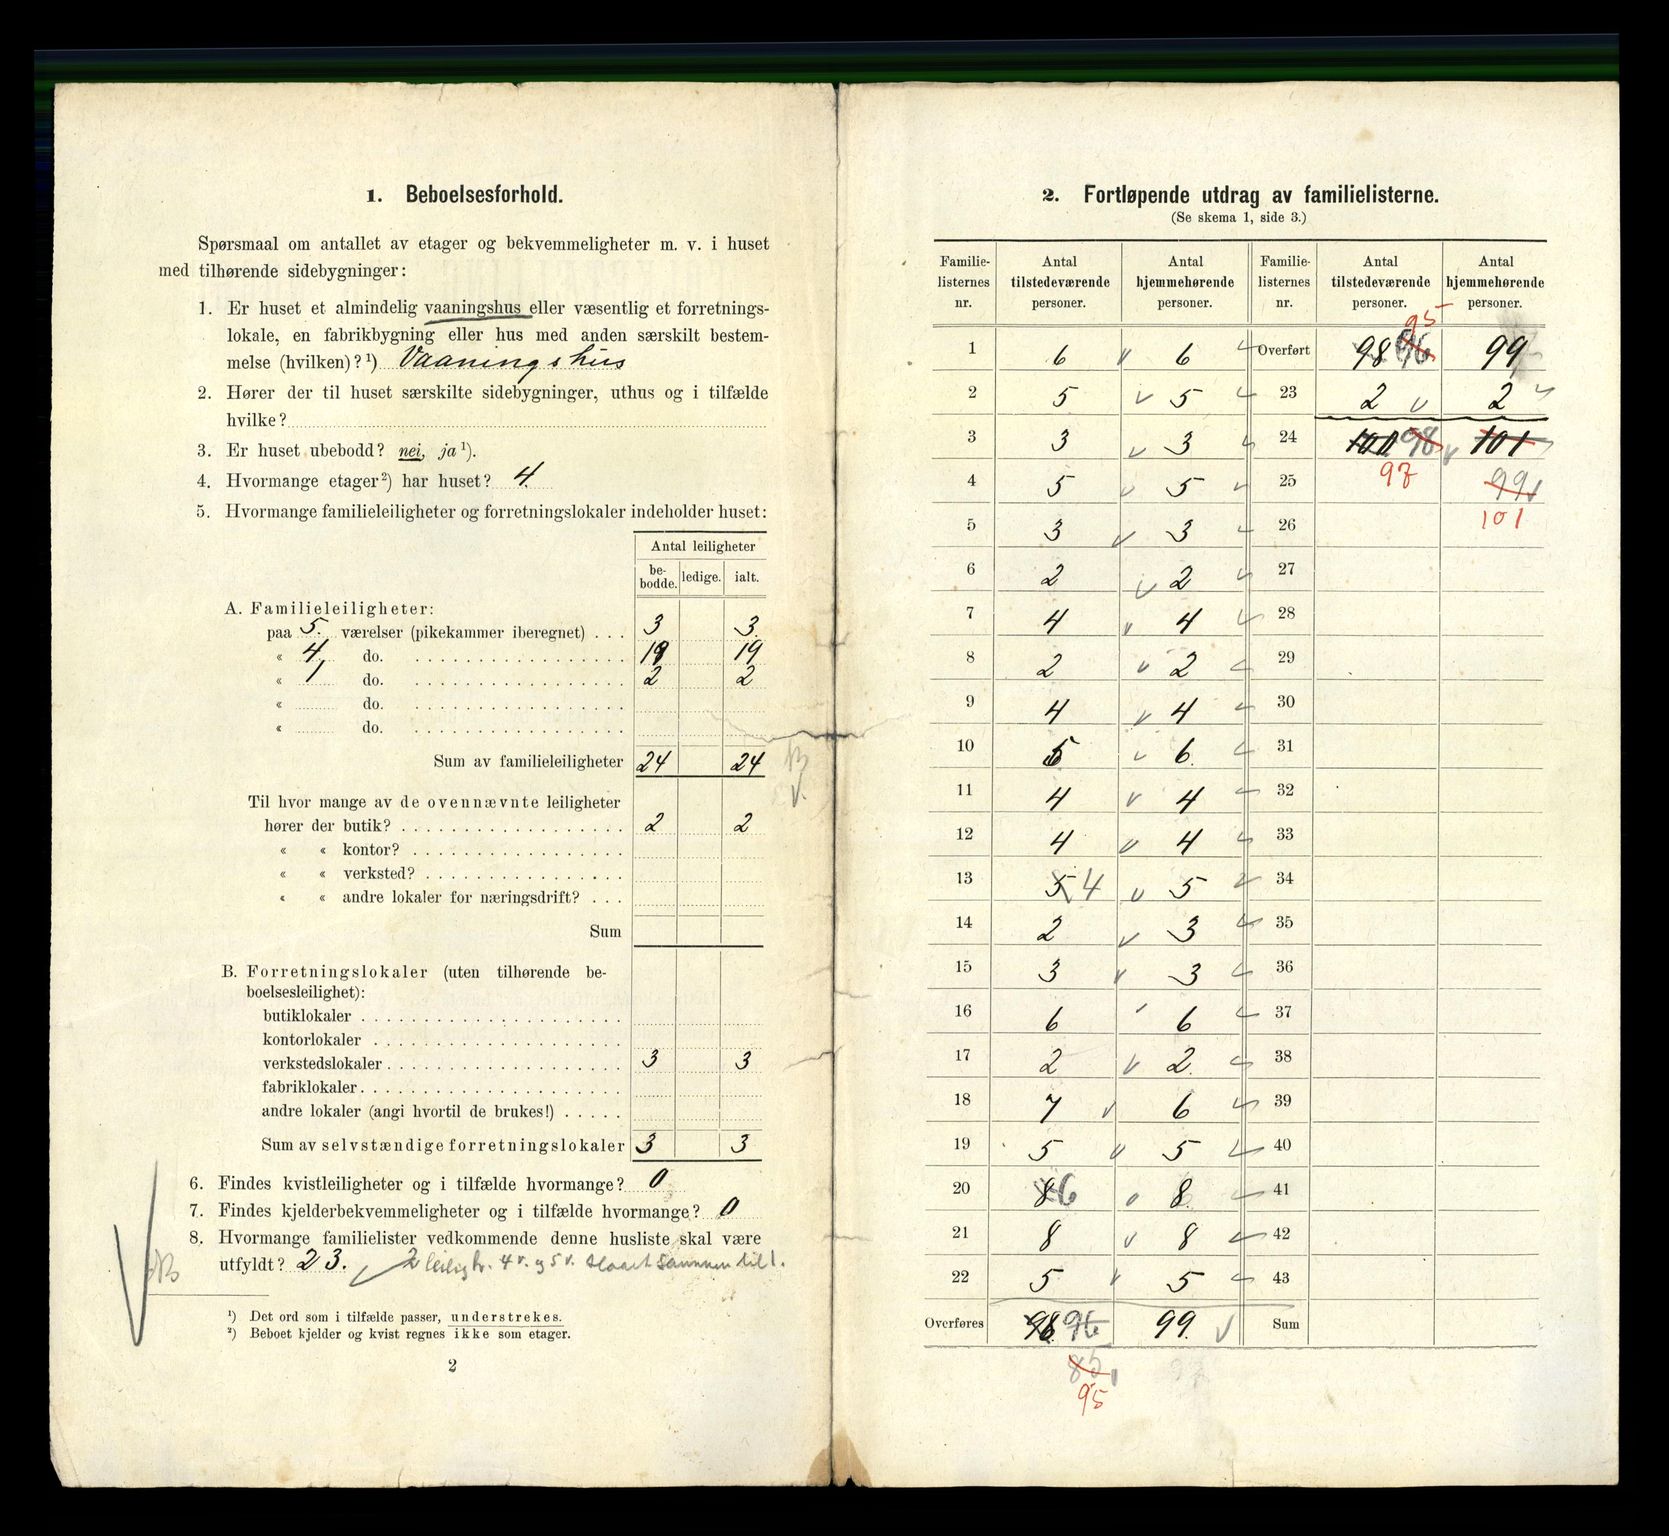 1. Beboelsesforhold.
Spørsmaal om antallet av etager og bekvemmeligheter m. v. i huset
med tilhørende sidebygninger:
1. Er huset et almindelig vaaningshus eller væsentlig et forretnings-
lokale, en fabrikbygning eller hus med anden særskilt bestem-
melse (hvilken)? ¹) Vaaningshus
2. Hører der til huset særskilte sidebygninger, uthus og i tilfælde
hvilke?
3. Er huset ubebodd? nei, ja ¹).
4. Hvormange etager ²) har huset? 4.
5. Hvormange familieleiligheter og forretningslokaler indeholder huset:
Antal leiligheter
be-bodde. ledige. ialt.
A. Familieleiligheter:
paa 5. værelser (pikekammer iberegnet) . . . 3 3.
« 4 do. 19 19
« 1 do. 2 2
« do.
« do.
Sum av familieleiligheter 24 24
Til hvor mange av de ovennævnte leiligheter
hører der butik? 2 2
« « kontor?
« « verksted?
« « andre lokaler for næringsdrift? . . .
Sum
B. Forretningslokaler (uten tilhørende be-
boelsesleilighet):
butiklokaler
kontorlokaler
verkstedslokaler 3 3
fabriklokaler
andre lokaler (angi hvortil de brukes!)
Sum av selvstændige forretningslokaler 3 3
6. Findes kvistleiligheter og i tilfælde hvormange? 0
7. Findes kjelderbekvemmeligheter og i tilfælde hvormange? 0
8. Hvormange familielister vedkommende denne husliste skal være
utfyldt? 23. 2 leiligh. 4 v. og 5 v. slaaet sammen til 1.
¹) Det ord som i tilfælde passer, understrekes.
²) Beboet kjelder og kvist regnes ikke som etager.
2
2. Fortløpende utdrag av familielisterne.
(Se skema 1, side 3.)
Familie-listernes nr. Antal tilstedeværende personer. Antal hjemmehørende personer. Familie-listernes nr. Antal tilstedeværende personer. Antal hjemmehørende personer.
95
1 6 6 Overført 98 96 99
2 5 5 23 2 2
3 3 3 24 100 98 101
4 5 5 25 97 99
5 3 3 26 101
6 2 2 27
7 4 4 28
8 2 2 29
9 4 4 30
10 5 6 31
11 4 4 32
12 4 4 33
13 5 4 5 34
14 2 3 35
15 3 3 36
16 6 6 37
17 2 2 38
18 7 6 39
19 5 5 40
20 8 6 8 41
21 8 8 42
22 5 5 43
Overføres 98 96 99 Sum
85
95